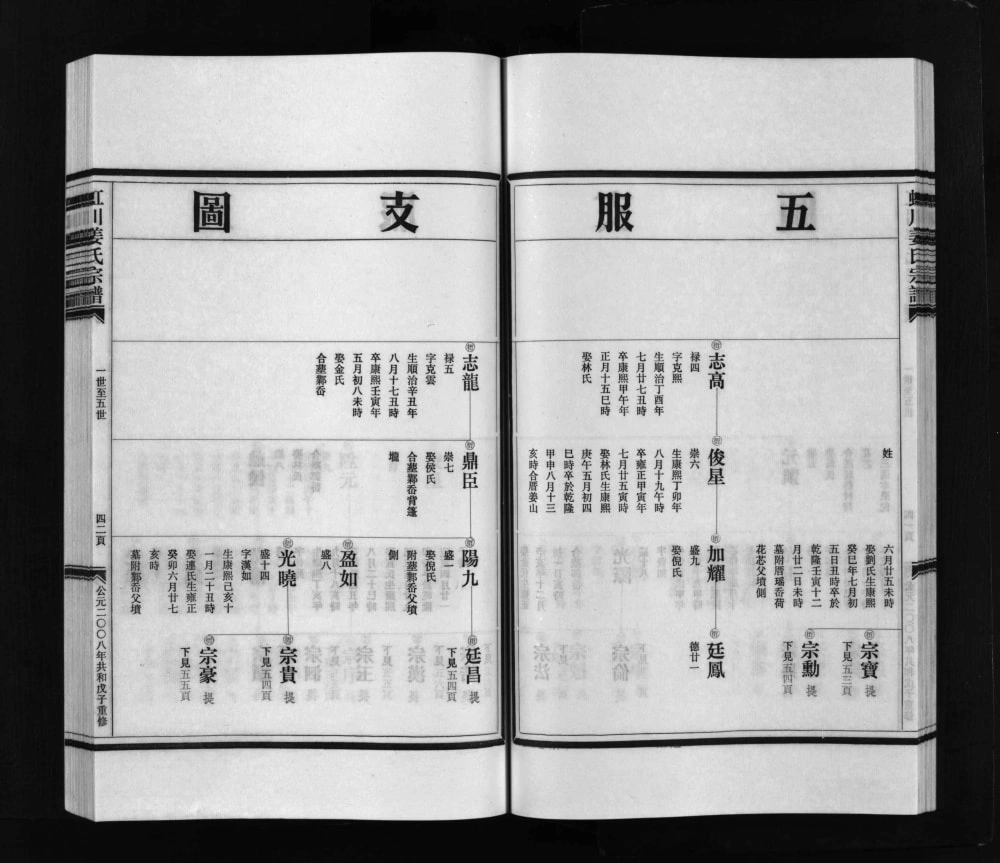 五服支圖
姓
六月廿五未時
娶劉氏生康熙
癸巳年七月初
五日丑時卒於
乾隆壬寅十二
月廿二日未時
墓附厝瑶嶴荷
花芯父墳側
宗寶 提
下見五三頁
宗勳 提
下見五四頁
志高
禄四
字克熙
生順治丁酉年
七月廿七丑時
卒康熙甲午年
正月十五巳時
娶林氏
俊星
崇六
生康熙丁卯年
八月十九午時
卒雍正甲寅年
七月廿五寅時
娶林氏生康熙
庚午五月初四
巳時卒於乾隆
甲申八月十三
亥時合厝姜山
加耀
盛九
娶倪氏
廷鳳
德廿一
志龍
禄五
字克雲
生順治辛丑年
八月十七丑時
卒康熙壬寅年
五月初八未時
娶金氏
合墓鄞嶴
鼎臣
崇七
娶侯氏
合墓鄞嶴背篷
壠
陽九
盛一
娶倪氏
附墓鄞嶴父墳
側
廷昌 提
下見五四頁
盈如
盛八
光曉
盛十四
字漢如
生康熙己亥十
一月二十丑時
娶連氏生雍正
癸卯六月廿七
亥時
墓附鄞嶴父墳
宗貴 提
下見五四頁
宗豪 提
下見五五頁
姜氏宗譜
一世至五世
四二頁
公元二〇〇八年共和戊子重修